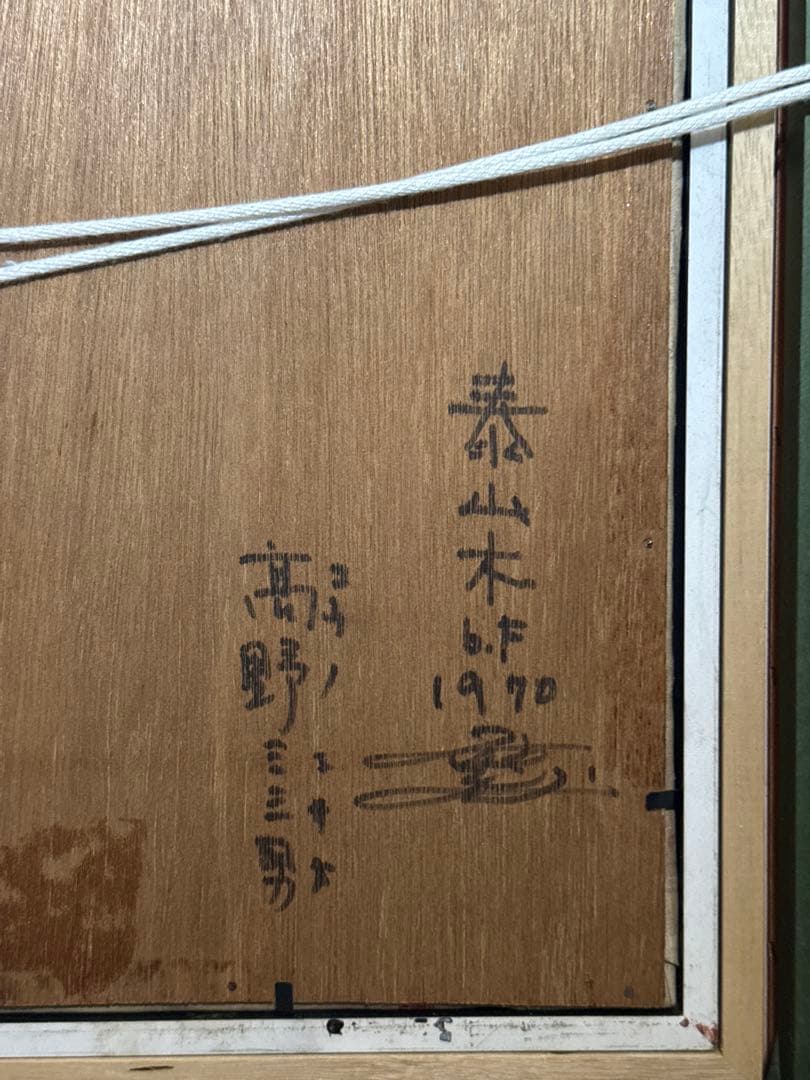 泰山木
6.F
1970
コウノ ミサオ
高野三三男